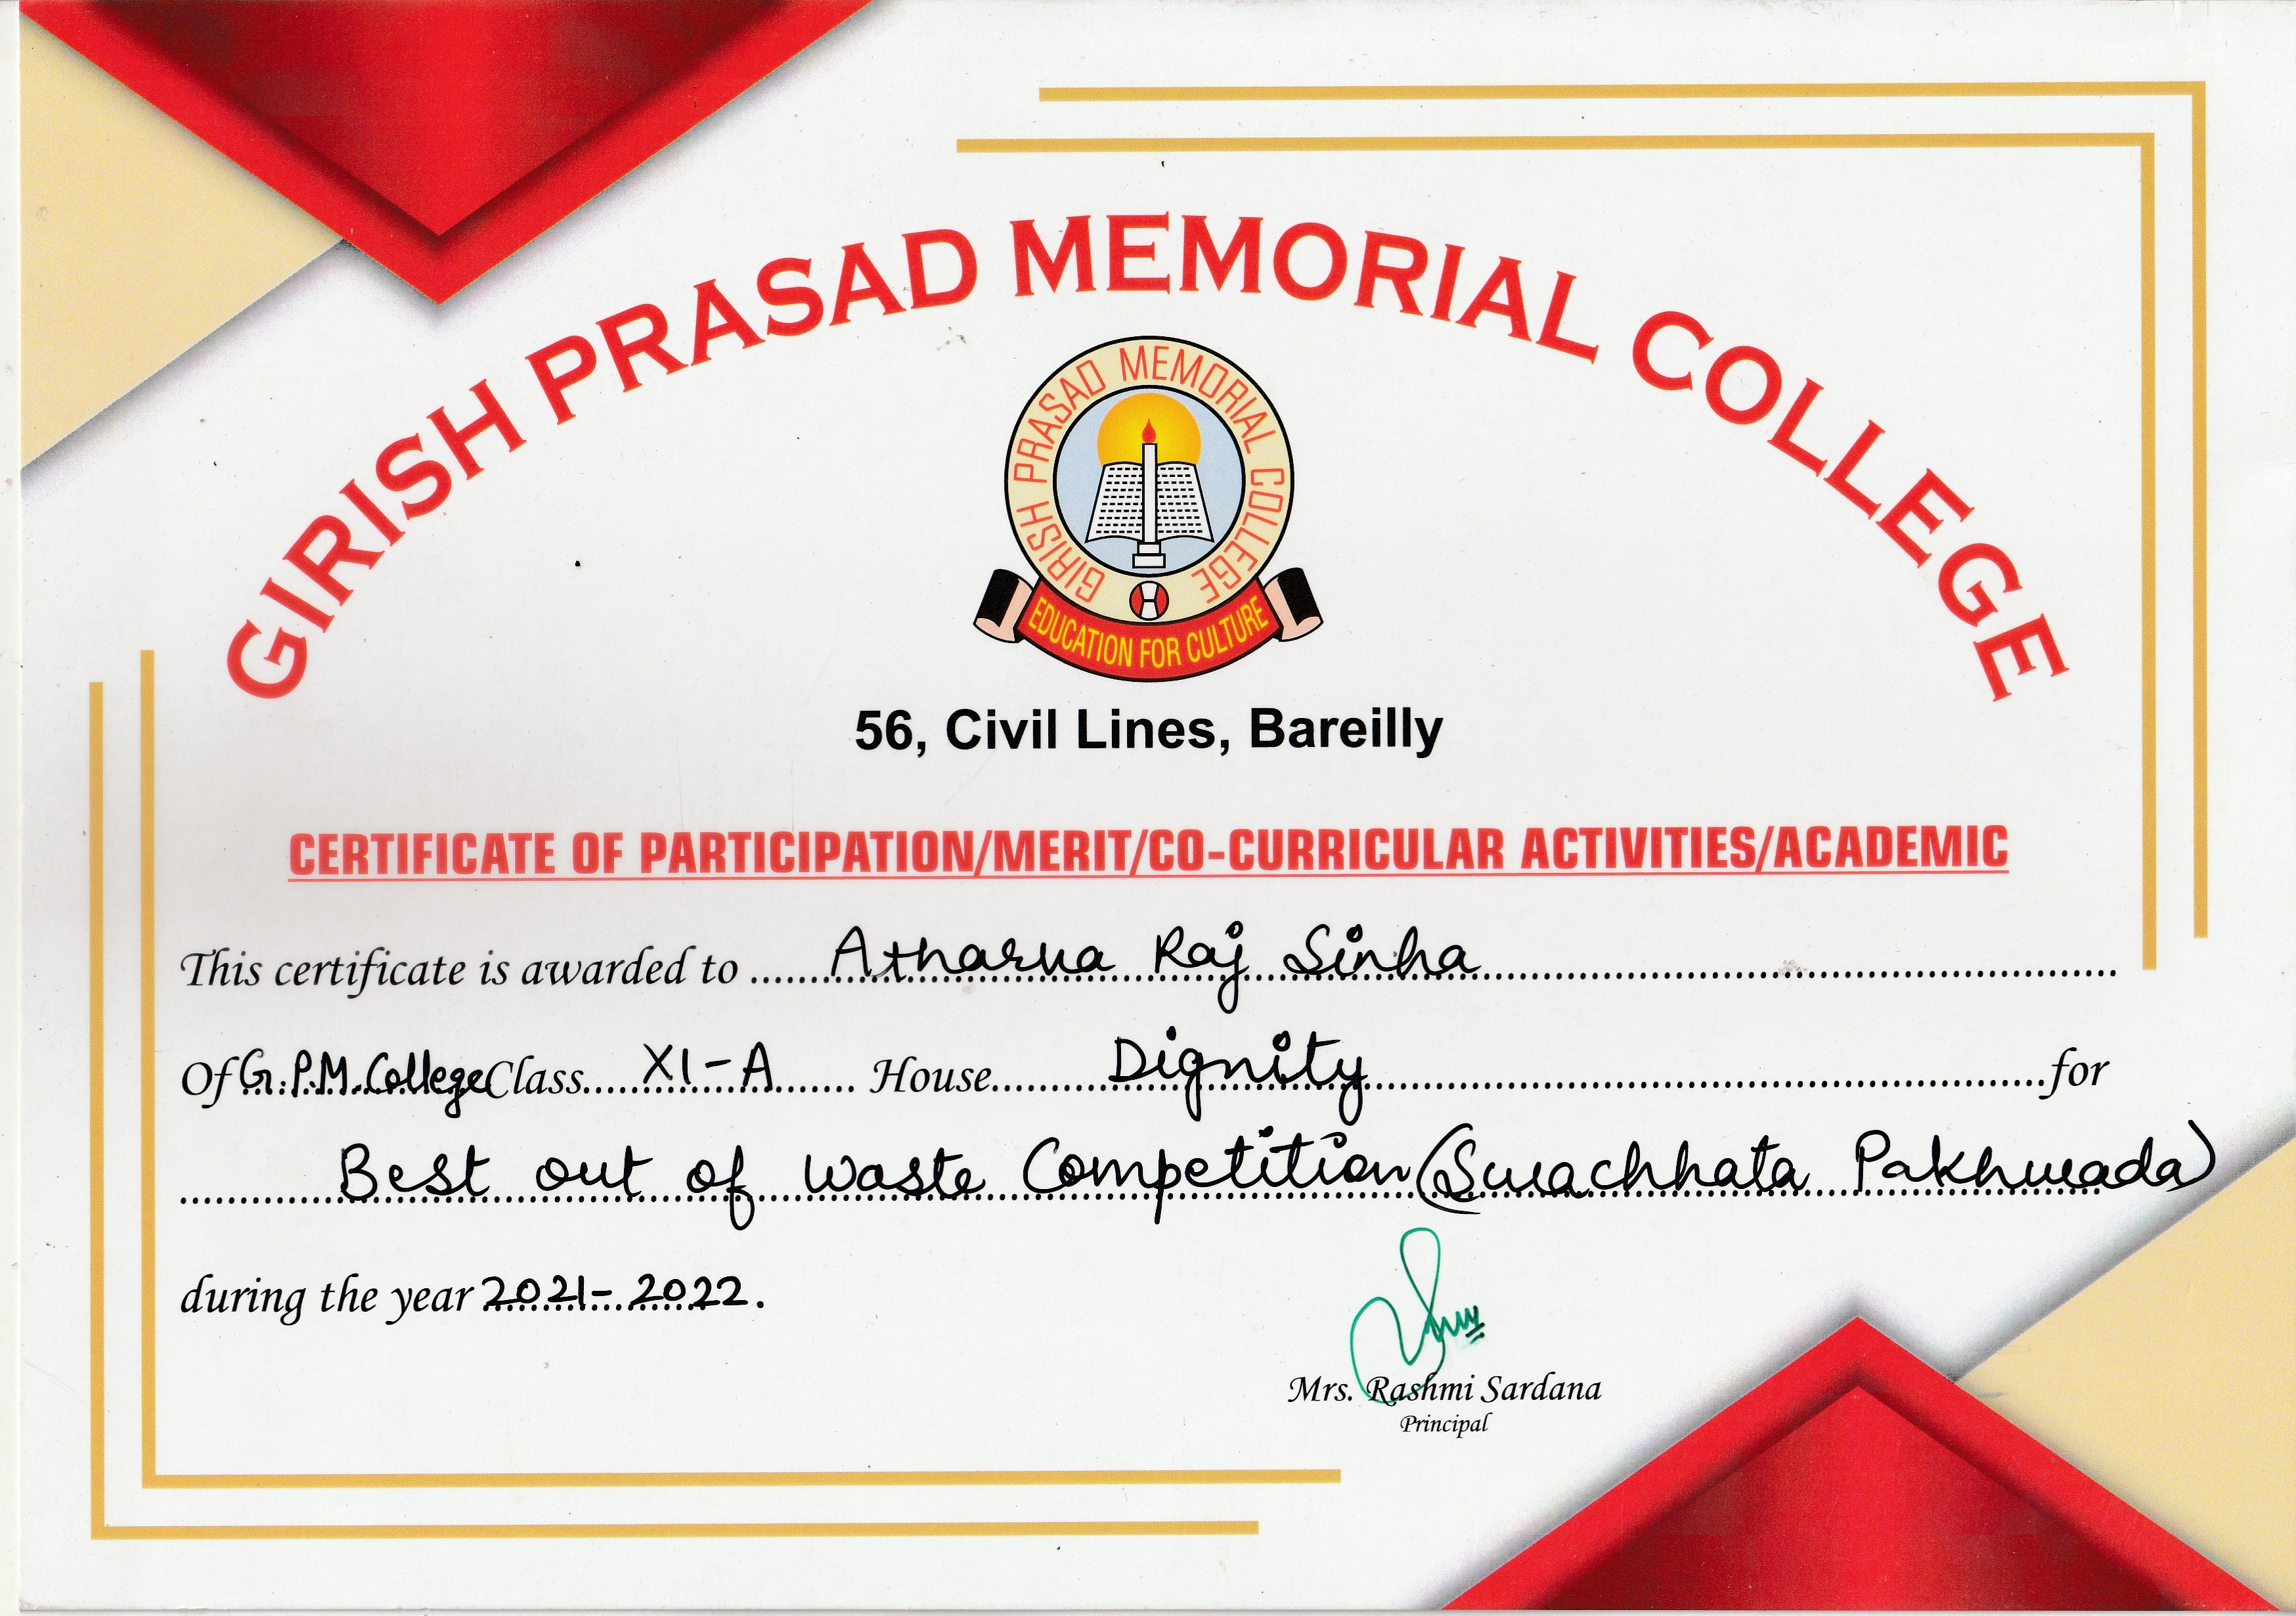 GIRISH PRASAD MEMORIAL COLLEGE
GIRISH PRASAD MEMORIAL COLLEGE
EDUCATION FOR CULTURE
56, Civil Lines, Bareilly
CERTIFICATE OF PARTICIPATION/MERIT/CO-CURRICULAR ACTIVITIES/ACADEMIC
This certificate is awarded to ...... Atharva Raj Sinha
Of G.P.M. College Class XI-A House Dignity for
Best out of Waste Competition (Swachhata Pakhwada)
during the year 2021-2022.
Mrs. Rashmi Sardana
Principal